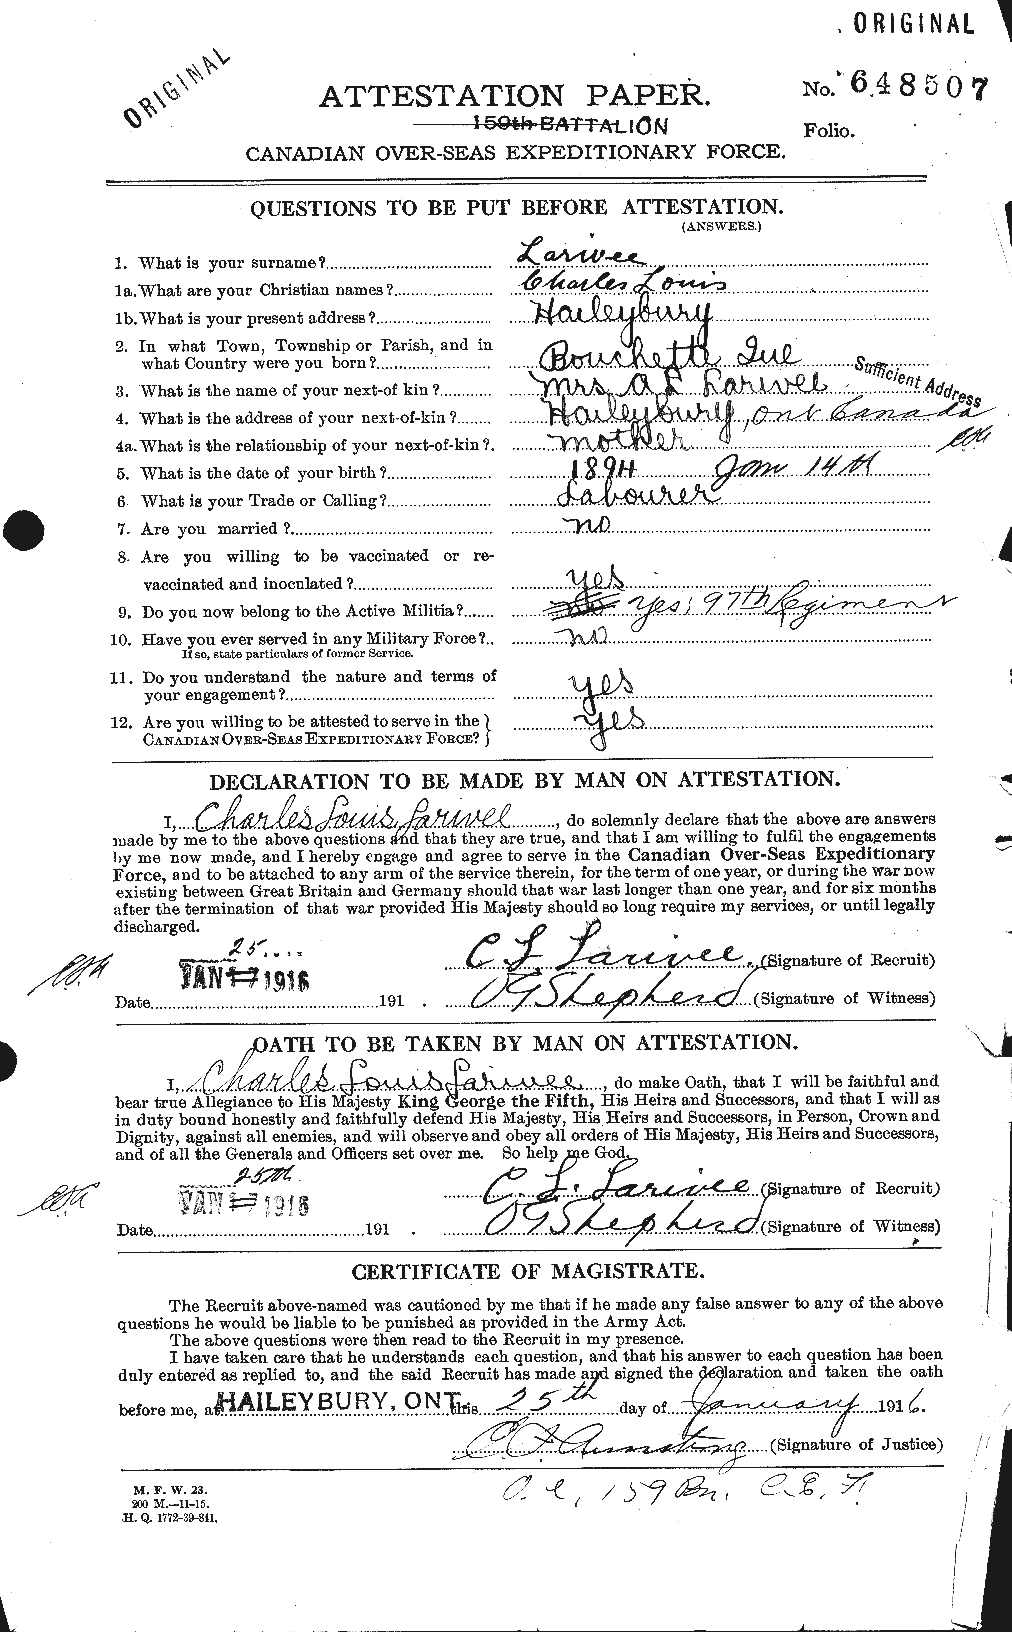 ORIGINAL
ORIGINAL
ATTESTATION PAPER.
No. 648507
159th BATTALION
Folio.
CANADIAN OVER-SEAS EXPEDITIONARY FORCE.
QUESTIONS TO BE PUT BEFORE ATTESTATION.
(ANSWERS.)
1. What is your surname? Larivee
1a. What are your Christian names? Charles Louis
1b. What is your present address? Haileybury
2. In what Town, Township or Parish, and in
what Country were you born? Bouchette Que
3. What is the name of your next-of kin? Mrs A L Larivee
Sufficient Address
4. What is the address of your next-of-kin? Haileybury, Ont Canada
4a. What is the relationship of your next-of-kin? mother
5. What is the date of your birth? 1894 Jan 14th
6. What is your Trade or Calling? Labourer
7. Are you married? no
8. Are you willing to be vaccinated or re-
vaccinated and inoculated? yes
9. Do you now belong to the Active Militia? yes, 97th Regiment
10. Have you ever served in any Military Force? no
If so, state particulars of former Service.
11. Do you understand the nature and terms of
your engagement? yes
12. Are you willing to be attested to serve in the
CANADIAN OVER-SEAS EXPEDITIONARY FORCE? yes
DECLARATION TO BE MADE BY MAN ON ATTESTATION.
I, Charles Louis Larivee, do solemnly declare that the above are answers
made by me to the above questions and that they are true, and that I am willing to fulfil the engagements
by me now made, and I hereby engage and agree to serve in the Canadian Over-Seas Expeditionary
Force, and to be attached to any arm of the service therein, for the term of one year, or during the war now
existing between Great Britain and Germany should that war last longer than one year, and for six months
after the termination of that war provided His Majesty should so long require my services, or until legally
discharged.
25
C L Larivee. (Signature of Recruit)
JAN 17 1916
Date 191 . O G Shepherd (Signature of Witness)
OATH TO BE TAKEN BY MAN ON ATTESTATION.
I, Charles Louis Larivee, do make Oath, that I will be faithful and
bear true Allegiance to His Majesty King George the Fifth, His Heirs and Successors, and that I will as
in duty bound honestly and faithfully defend His Majesty, His Heirs and Successors, in Person, Crown and
Dignity, against all enemies, and will observe and obey all orders of His Majesty, His Heirs and Successors,
and of all the Generals and Officers set over me. So help me God.
25th
C. L. Larivee (Signature of Recruit)
JAN 17 1916
Date 191 . O G Shepherd (Signature of Witness)
CERTIFICATE OF MAGISTRATE.
The Recruit above-named was cautioned by me that if he made any false answer to any of the above
questions he would be liable to be punished as provided in the Army Act.
The above questions were then read to the Recruit in my presence.
I have taken care that he understands each question, and that his answer to each question has been
duly entered as replied to, and the said Recruit has made and signed the declaration and taken the oath
before me, at HAILEYBURY, ONT. this 25th day of January 1916.
E F Armstrong (Signature of Justice)
O.C, 159 Bn. C.E.F.
M. F. W. 23.
200 M.—11-15.
H. Q. 1772-39-841.